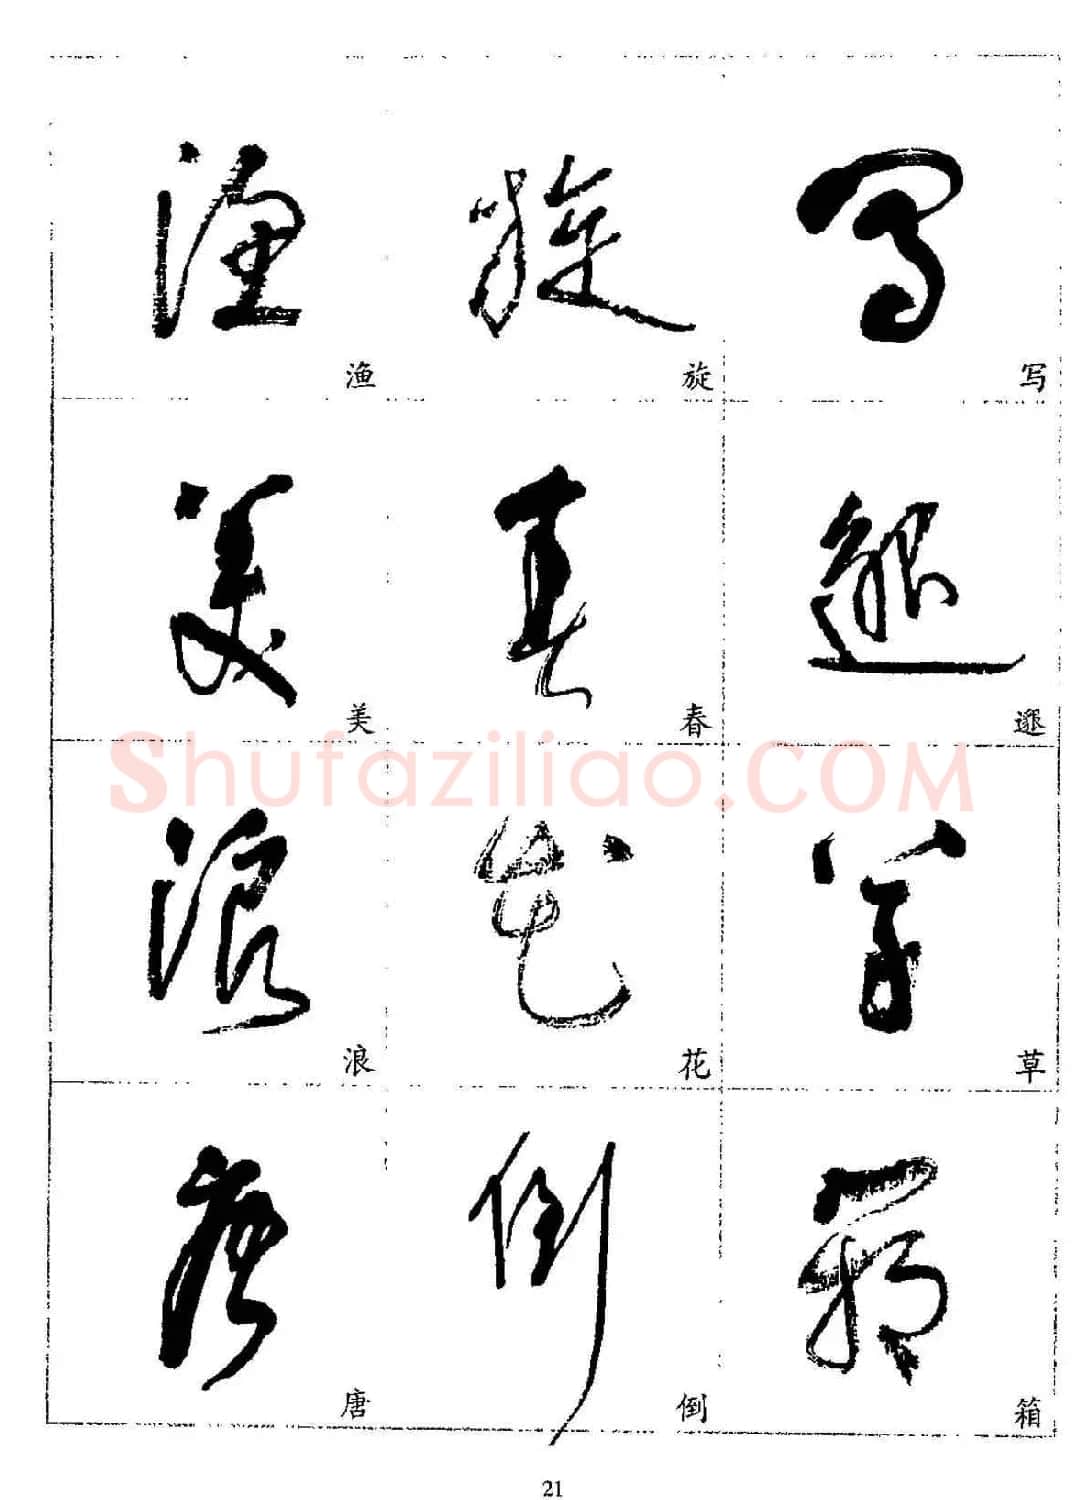 渔 旋 写
美 春 邈
Shufaziliao.COM
浪 花 草
唐 倒 箱
21